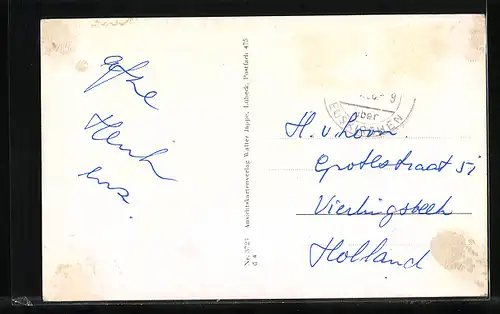 Henk
enz.
Nr. 5723 Ansichtskartenverlag Walter Jappe, Lübeck, Postfach 475
über
EUSKIRCHEN
H. v. Loon.
Grotestraat 51
Vierlingsbeek
Holland